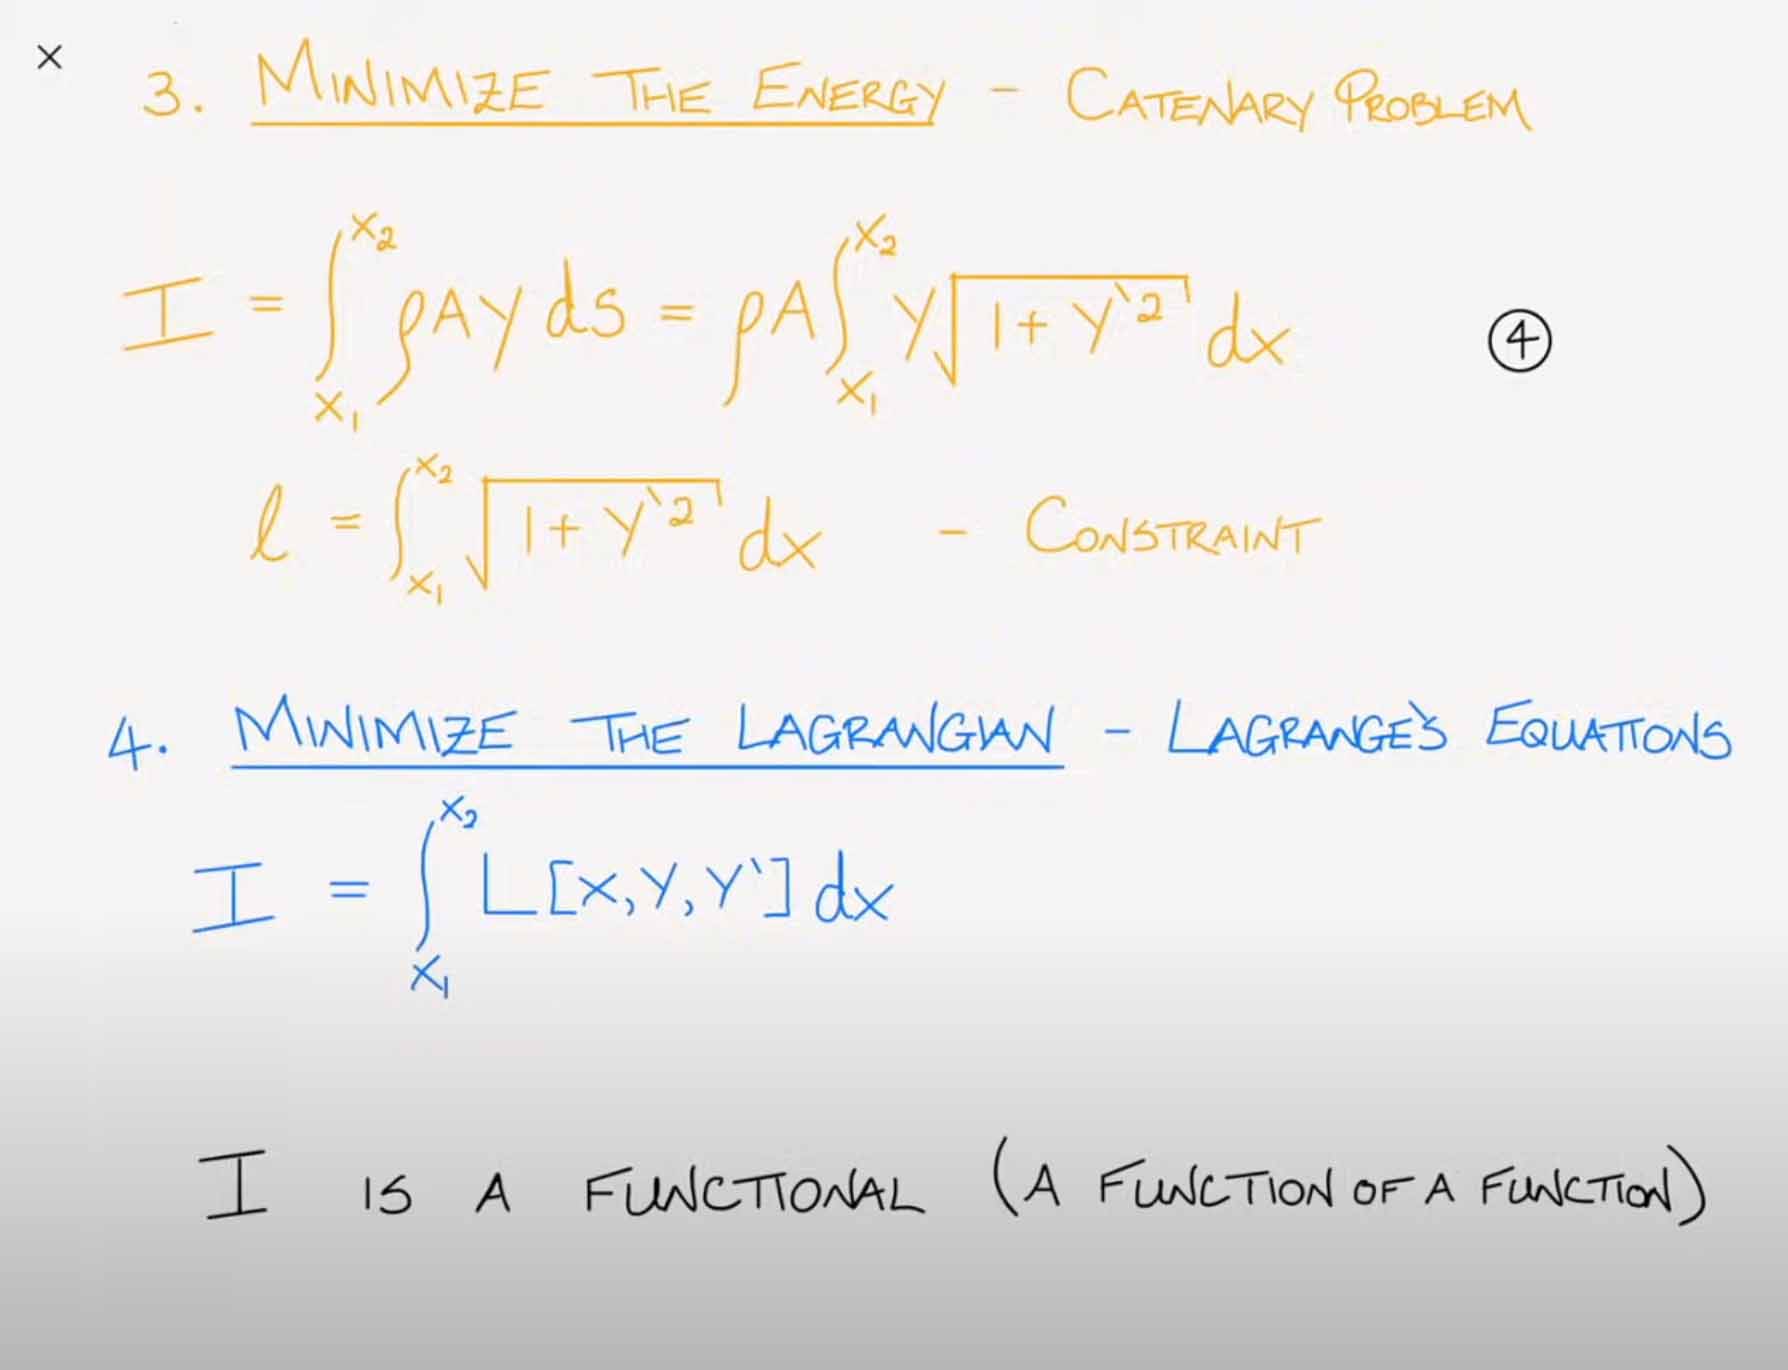 ×
3. MINIMIZE THE ENERGY - CATENARY PROBLEM
I = ∫_{x₁}^{x₂} ρAy ds = ρA ∫_{x₁}^{x₂} y√(1 + y`²) dx ④
l = ∫_{x₁}^{x₂} √(1 + y`²) dx - CONSTRAINT
4. MINIMIZE THE LAGRANGIAN - LAGRANGE`S EQUATIONS
I = ∫_{x₁}^{x₂} L[x, y, y`] dx
I IS A FUNCTIONAL (A FUNCTION OF A FUNCTION)